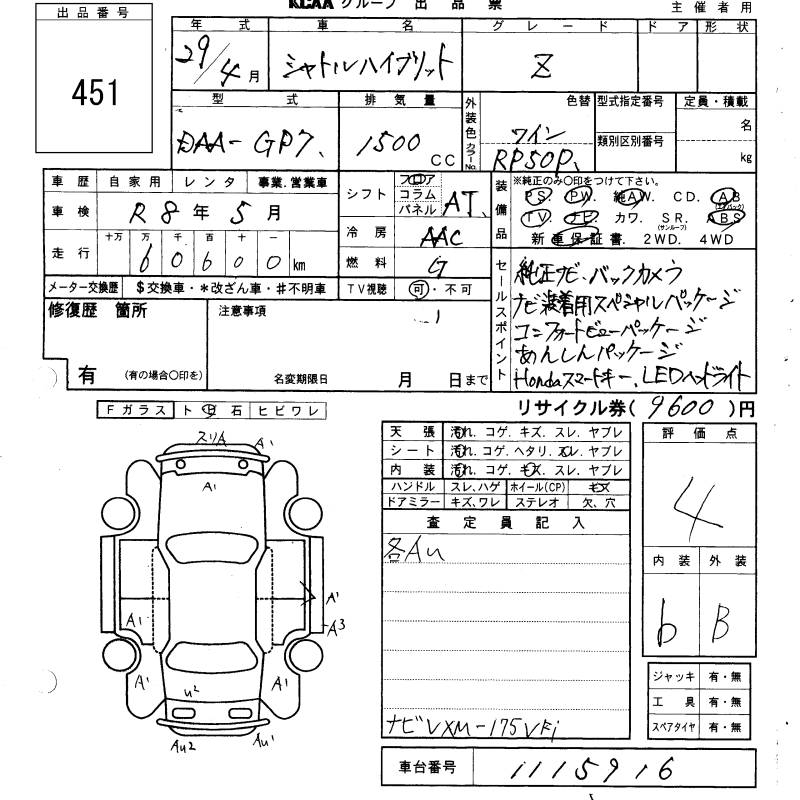 KCAA グループ 出品票
主催者用
出品番号
451
年式 車名 グレード ドア 形状
29/4月 シャトルハイブリット Z
型式 排気量 外装色 カラーNo. 色替 型式指定番号 定員・積載
DAA-GP7 1500CC ワイン 類別区別番号 名
RP50P kg
車歴 自家用 レンタ 事業.営業車
シフト フロア コラム パネル AT
装備品 ※純正のみ〇印をつけて下さい。
PS. PW. 純AW. CD. AB (エアバック)
TV. ナビ. カワ. SR. (サンルーフ) ABS
新車保証書. 2WD. 4WD
車検 R8年5月
冷房 AAC
走行 十万 万 千 百 十 一
60600km
燃料 G
メーター交換歴 $交換車・*改ざん車・#不明車
TV視聴 可・不可
セールスポイント
純正ナビ、バックカメラ
ナビ装着用スペシャルパッケージ
コンフォートビューパッケージ
あんしんパッケージ
Hondaスマートキー、LEDヘッドライト
修復歴 箇所
注意事項
有 (有の場合〇印を)
名変期限日 月 日まで
リサイクル券(9600)円
Fガラス ト 石 ヒビワレ
スリA A1
A1
A1
A3
A1
A1 A1
U2
AU2 AU1
天張 汚れ. コゲ. キズ. スレ. ヤブレ
シート 汚れ. コゲ. ヘタリ. スレ. ヤブレ
内装 汚れ. コゲ. キズ. スレ. ヤブレ
ハンドル スレ、ハゲ ホイール(CP) キズ
ドアミラー キズ、ワレ ステレオ 欠、穴
査定員記入
各AU
ナビVXM-175VFi
評価点
4
内装 外装
6 B
ジャッキ 有・無
工具 有・無
スペアタイヤ 有・無
車台番号 1115916